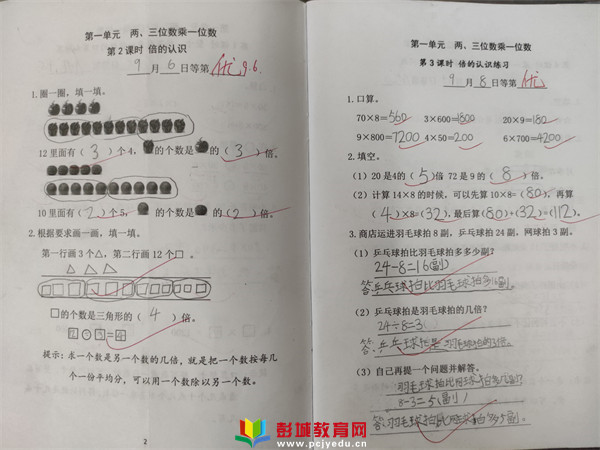 第一单元 两、三位数乘一位数
第2课时 倍的认识
9月6日等第 优 9.6
1.圈一圈，填一填。
12里面有（3）个4，的个数是的（3）倍。
10里面有（2）个5，的个数是的（2）倍。
2.根据要求画一画，填一填。
第一行画3个△，第二行画12个□。
□的个数是三角形的（4）倍。
提示：求一个数是另一个数的几倍，就是把一个数按每几
个一份平均分，可以用一个数除以另一个数。
2
第一单元 两、三位数乘一位数
第3课时 倍的认识练习
9月8日等第 优
1.口算。
70×8=560 3×600=1800 20×9=180
9×800=7200 4×50=200 6×700=4200
2.填空。
（1）20是4的（5）倍 72是9的（8）倍。
（2）计算14×8的时候，可以先算10×8=（80），再算
（4）×8=（32），最后算（80）+（32）=（112）。
3.商店运进羽毛球拍8副，乒乓球拍24副，网球拍3副。
（1）乒乓球拍比羽毛球拍多多少副？
24-8=16(副)
答:乒乓球拍比羽毛球拍多16副。
（2）乒乓球拍是羽毛球拍的几倍？
24÷8=3
答:乒乓球拍是羽毛球拍的3倍。
（3）自己再提一个问题并解答。
羽毛球拍比网球拍多几副?
8-3=5(副)
答:羽毛球拍比网球拍多5副。
彭城教育网
www.pcjyedu.cn